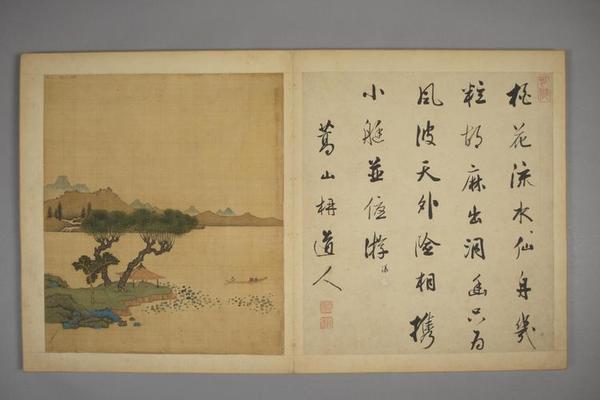 桃花流水仙舟幾
粒胡麻出洞幽只為
風波天外險相攜
小艇並優游
山道人